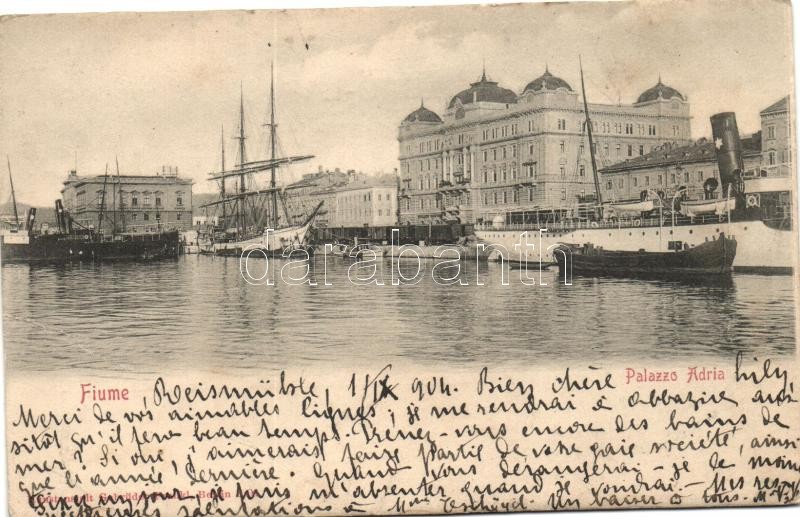 darabanth
Fiume
Palazzo Adria
Reismühle, 1/IX 904. Bien chère Lily,
Merci de vos aimables lignes; je me rendrai à Abbazire aus-
sitôt qu'il fera beau temps. Prenez-vous encore des bains de
mer? Si oui, j'aimerais faire partie de votre gaie société, ainsi
que l'année dernière. Quand vous dérangerai-je le moins
je puis m'absenter quand je voudrai. Mes res-
pectueuses salutations à Mme Un baiser à tous.